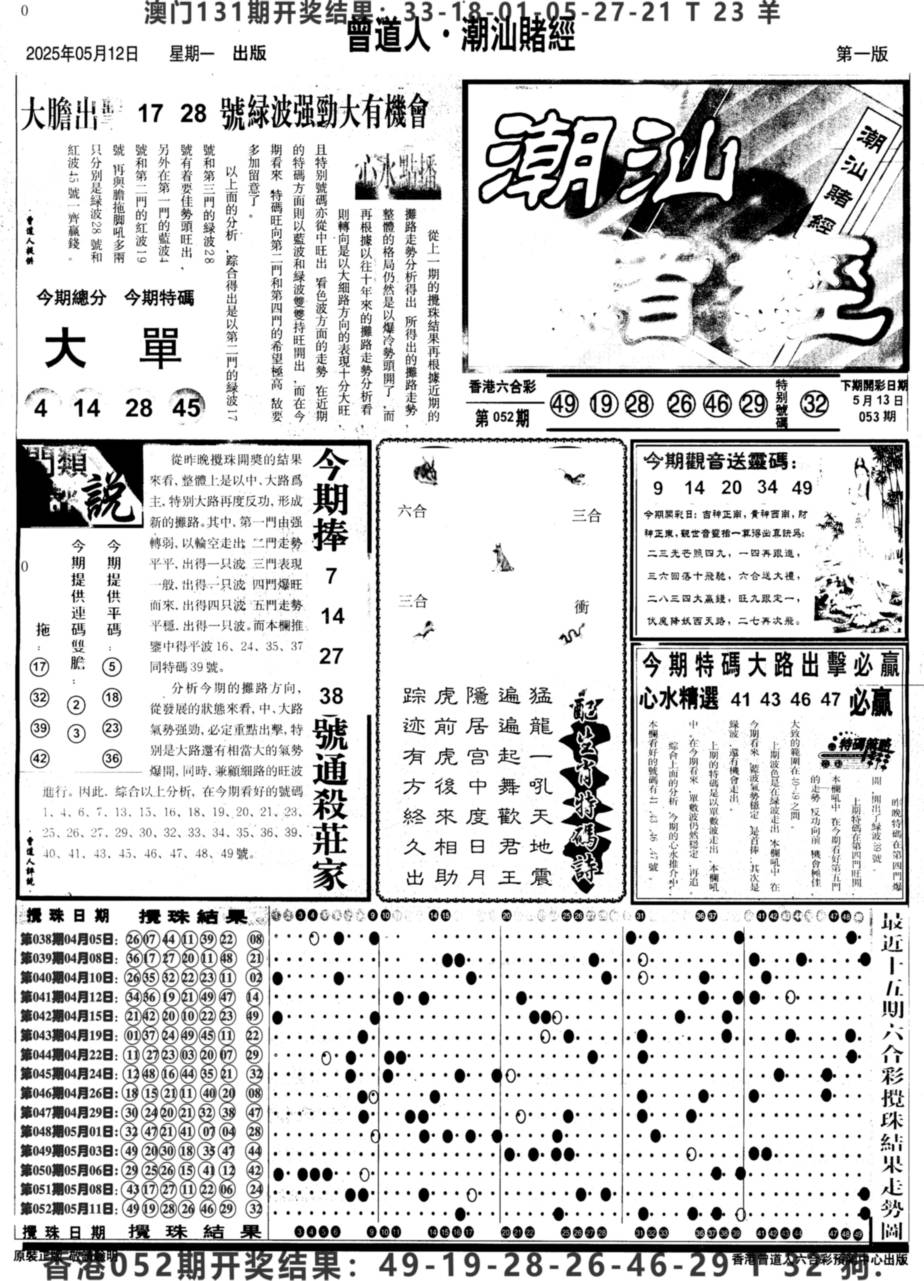 澳门131期开奖结果：33-18-01-05-27-21 T 23 羊
曾道人·潮汕賭經
2025年05月12日 星期一 出版
第一版
大膽出 17 28 號緑波强勁大有機會
心水點播
從上一期的攪珠結果再根據近期的
攤路走勢分析得出 所得出的攤路走勢
整體的格局仍然是以爆冷勢頭開了 而
再根據以往十年來的攤路走勢分析看
則轉向是以大細路方向的表現十分大旺
且特別號碼亦從中旺出 看色波方面的走勢 在近期
的特碼方面則以藍波和緑波雙雙持旺開出 而在今
期看來 特碼旺向第二門和第四門的希望極高 故要
多加留意了。
以上面的分析，踪合得出是以第二門的緑波17
號和第三門的緑波28
號有着要佳勢頭旺出，
另外在第一門的藍波4
號和第二門的紅波19
號 再與膽拖脚吼多兩
只分別是緑波28號和
紅波45號一齊贏錢。
·曾道人提供
今期總分 今期特碼
大 單
4 14 28 45
潮汕
潮汕賭經
香港六合彩
第052期
49 19 28 26 46 29
特别號碼
32
下期開彩日期
5月13日
053期
門類
説
今期提供平碼：
5
18
23
36
今期提供連碼雙膽：
2
3
拖：
17
32
39
42
從昨晚攪珠開獎的結果
來看，整體上是以中、大路爲
主，特别大路再度反功，形成
新的攤路。其中，第一門由强
轉弱，以輪空走出，二門走勢
平平，出得一只波，三門表現
一般，出得一只波，四門爆旺
而來，出得四只波，五門走勢
平穩，出得一只波。而本欄推
鑒中得平波16、24、35、37
同特碼39號。
分析今期的攤路方向，
從發展的狀態來看，中、大路
氣勢强勁，必定重點出擊，特
別是大路還有相當大的氣勢
爆開，同時，兼顧細路的旺波
進行。因此，綜合以上分析，在今期看好的號碼
1、4、6、7、13、15、16、18、19、20、21、23、
25、26、27、29、30、32、33、34、35、36、39、
40、41、43、45、46、47、48、49號。
曾道人評説
今期捧
7
14
27
38
號通殺莊家
六合
三合
三合
衝
配生肖特碼詩
猛龍一吼天地震
遍遍起舞歡君王
隱居宫中度日月
虎前虎後來相助
踪迹有方終久出
今期觀音送靈碼：
9 14 20 34 49
今期開彩日：吉神正南，貴神西南，財
二三先芒照四九，一四再跟進，
三六回落十飛馳，六合送大禮，
二八三四大贏錢，旺九跟定一，
伏魔降妖西天路，二七再次飛。
今期特碼大路出擊必贏
心水精選 41 43 46 47 必贏
特碼策略
昨晚特碼在第四門爆
開，開出了緑波39號。
上期特碼在第四門旺開，
本欄吼中，在今期看好第五門
的走勢，反功向前，機會極佳，
大致的範圍在40-49之間。
上期波色是在緑波走出，本欄吼中，在
今期看來，藍波氣勢穩定，是首捧，其次是
緑波，還有機會走出。
上期的特碼是以單數波走出，本欄吼
中，在今期看來，單數波仍然穩定，再追。
綜合上面的分析，今期的心水推介中，
本欄看好的號碼有41、43、46、47號。
攪珠日期 攪珠結果
第038期04月05日：26 07 44 11 39 22 08
第039期04月08日：36 17 27 20 11 48 21
第040期04月10日：26 35 32 22 23 11 02
第041期04月12日：34 36 19 21 49 47 14
第042期04月15日：21 42 20 10 22 23 49
第043期04月19日：01 37 24 49 45 11 22
第044期04月22日：11 27 23 03 20 07 29
第045期04月24日：12 48 16 44 35 21 32
第046期04月26日：18 15 21 11 40 20 08
第047期04月29日：30 24 20 21 32 38 47
第048期05月01日：32 47 21 41 07 04 28
第049期05月03日：49 20 30 18 35 47 44
第050期05月06日：29 25 26 15 41 12 42
第051期05月08日：43 17 27 11 22 06 24
第052期05月11日：49 19 28 26 46 29 32
攪珠日期 攪珠結果
最近十五期六合彩攪珠結果走勢圖
香港曾道人六合彩預測中心出版
香港052期开奖结果：49-19-28-26-46-29 T 32 狗.